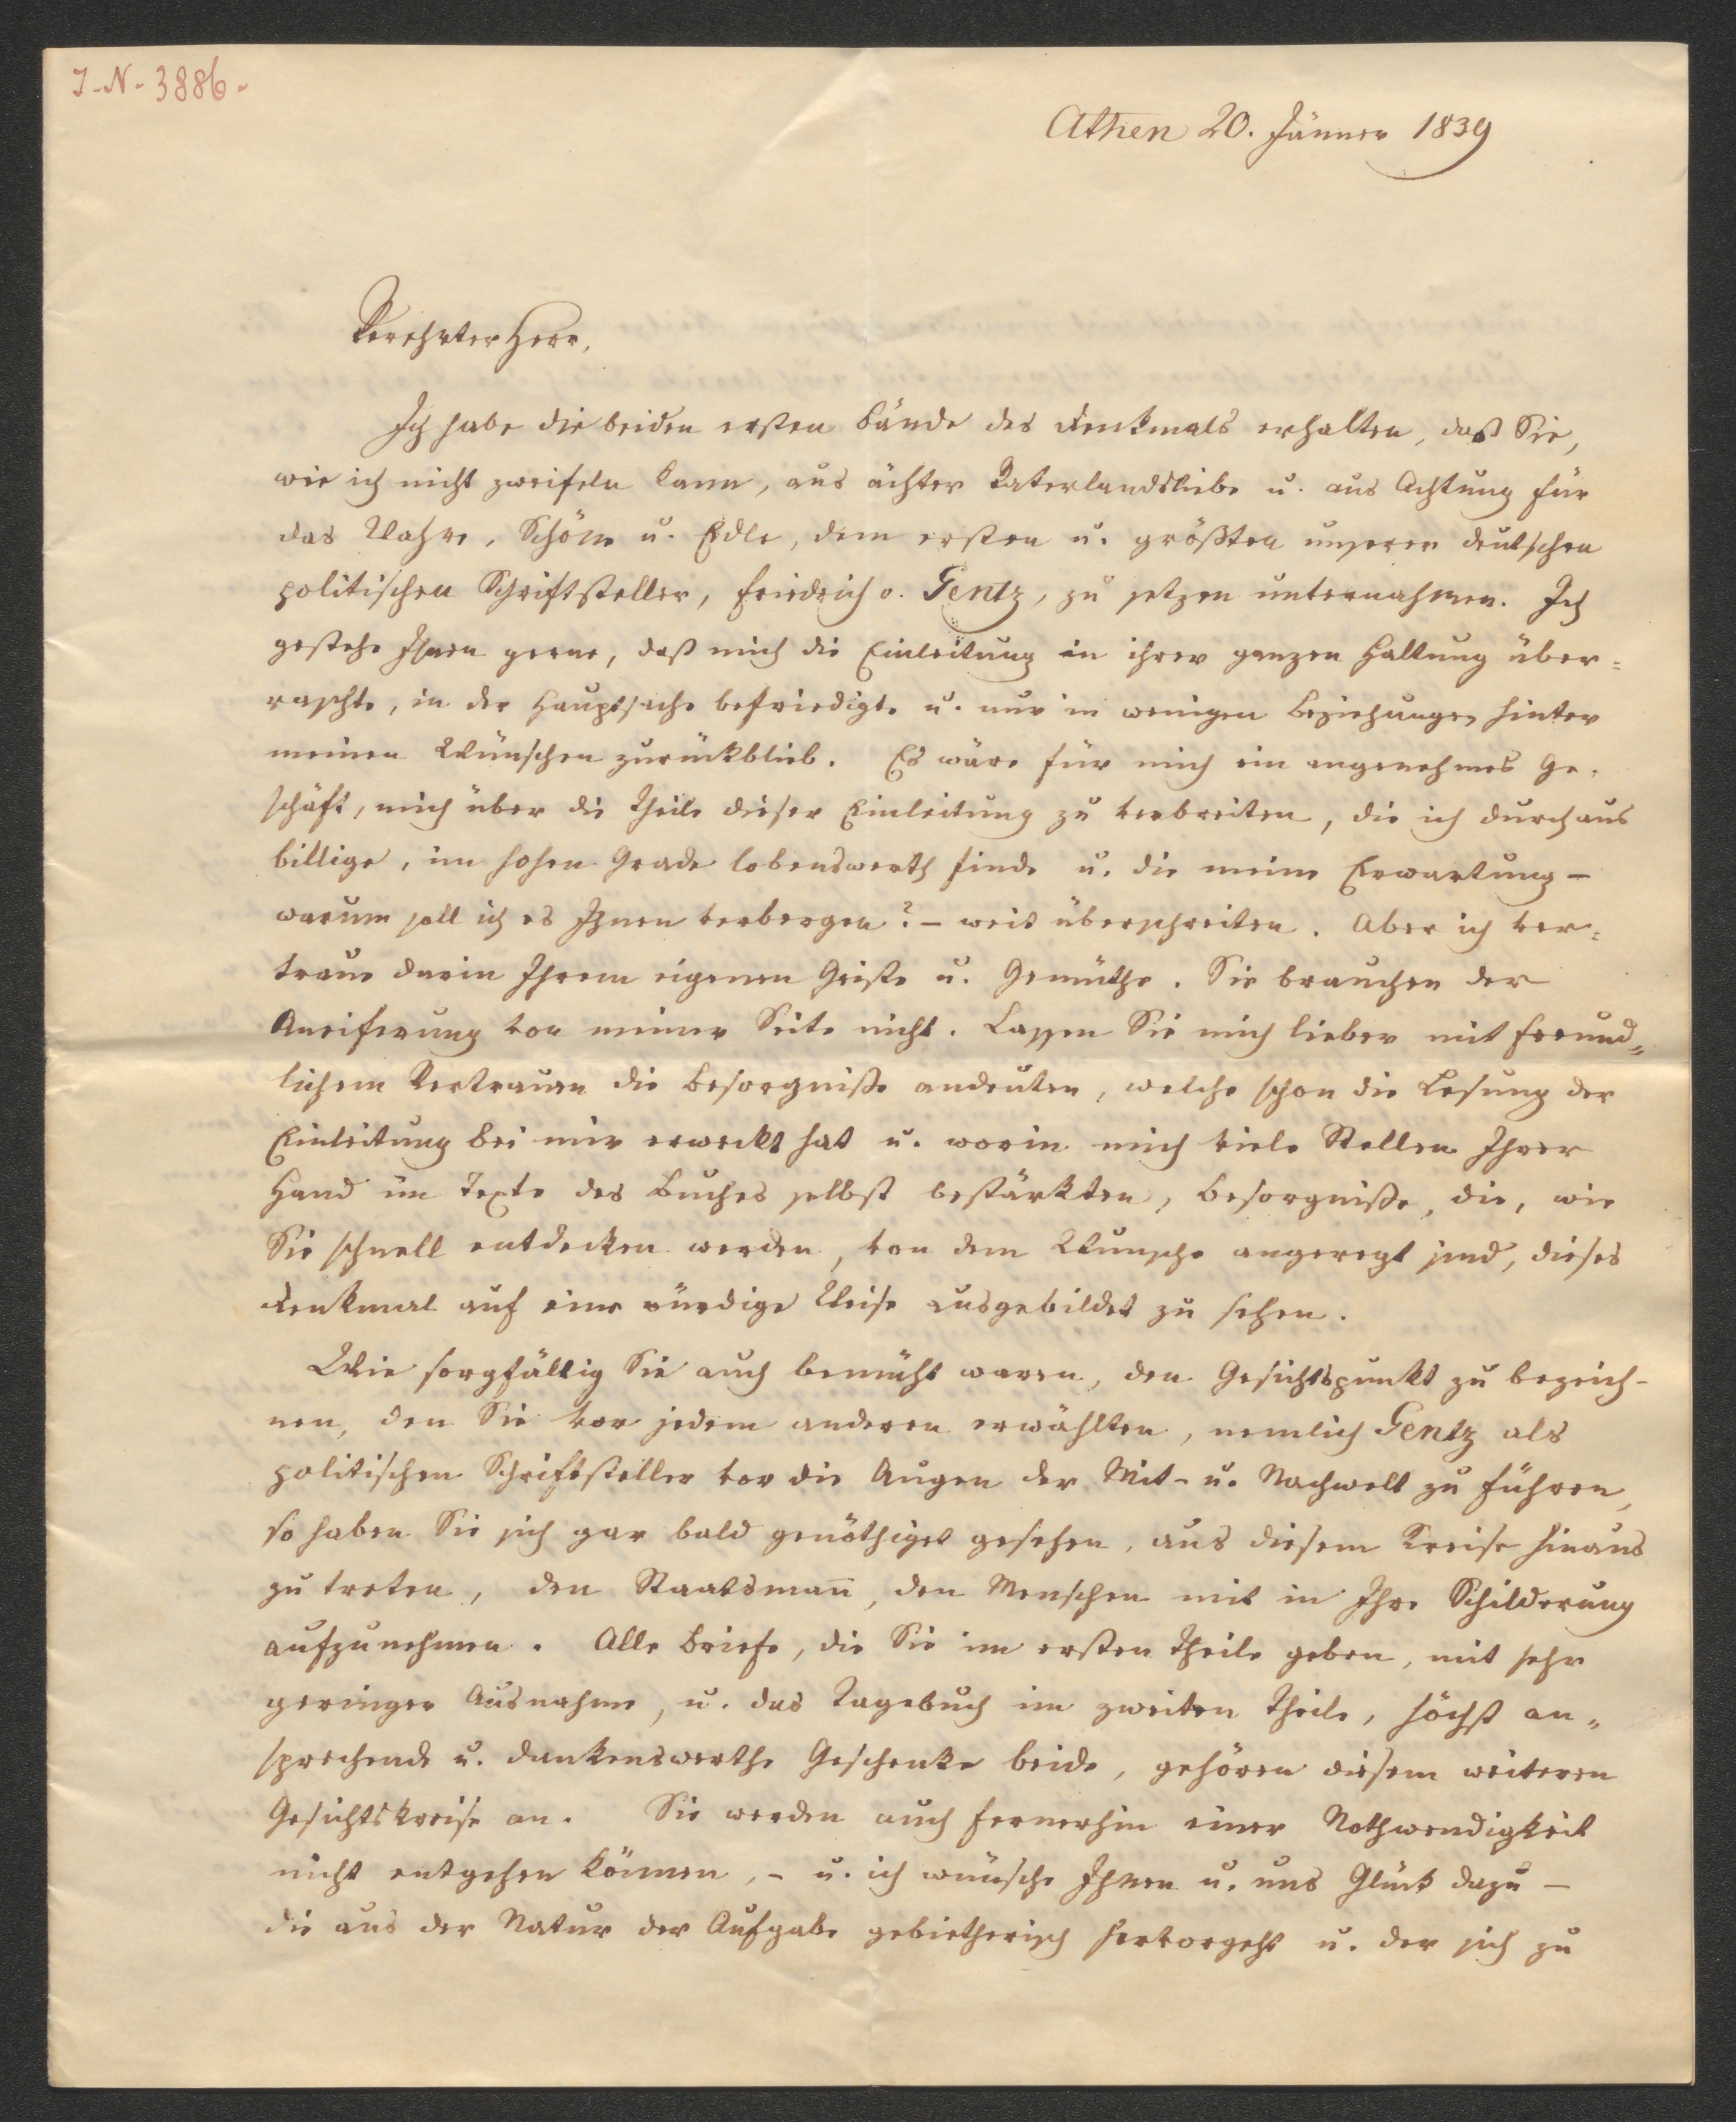 I-N-3886-
Athen 20. Jänner 1839
Verehrter Herr,
Ich habe die beiden ersten Bände des Denkmals erhalten, daß Sie,
wie ich nicht zweifeln kann, aus ächter Vaterlandsliebe u. aus Achtung für
das Wahre, Schöne u. Edle, dem ersten u. größten unserer deutschen
politischen Schriftsteller, Friedrich v. Gentz, zu setzen unternahmen. Ich
gestehe Ihnen gerne, daß mich die Einleitung in ihrer ganzen Haltung über=
raschte, in der Hauptsache befriedigte u. nur in wenigen Beziehungen hinter
meinen Wünschen zurückblieb. Es wäre für mich ein angenehmes Ge-
schäft, mich über die Theile dieser Einleitung zu verbreiten, die ich durchaus
billige, im hohen Grade lobenswerth finde u. die meine Erwartung –
warum soll ich es Ihnen verbergen? – weit überschreiten. Aber ich ver=
traue darin Ihrem eigenen Geiste u. Gemüthe. Sie brauchen der
Aneiferung von meiner Seite nicht. Lassen Sie mich lieber mit freund=
lichem Vertrauen die Besorgniße andeuten, welche schon die Lesung der
Einleitung bei mir erweckt hat u. worin mich viele Stellen Ihrer
Hand im Texte des Buches selbst bestärkten, Besorgniße, die, wie
Sie schnell entdecken werden, von dem Wunsche angeregt sind, dieses
Denkmal auf eine würdige Weise ausgebildet zu sehen.
Wie sorgfältig Sie auch bemüht waren, den Gesichtspunkt zu bezeich-
nen, den Sie vor jedem anderen erwählten, nemlich Gentz als
politischen Schriftsteller vor die Augen der Mit- u. Nachwelt zu führen,
so haben Sie sich gar bald genöthiget gesehen, aus diesem Kreise hinaus
zu treten, den Staatsmañ, den Menschen mit in Ihre Schilderung
aufzunehmen. Alle Briefe, die Sie im ersten Theile geben, mit sehr
geringer Ausnahme, u. das Tagebuch im zweiten Theile, höchst an=
sprechende u. dankenswerthe Geschenke beide, gehören diesem weiteren
Gesichtskreise an. Sie werden auch fernerhin einer Nothwendigkeit
nicht entgehen können, – u. ich wünsche Ihnen u. uns Glück dazu –
die aus der Natur der Aufgabe gebietherisch hervorgeht u. der sich zu